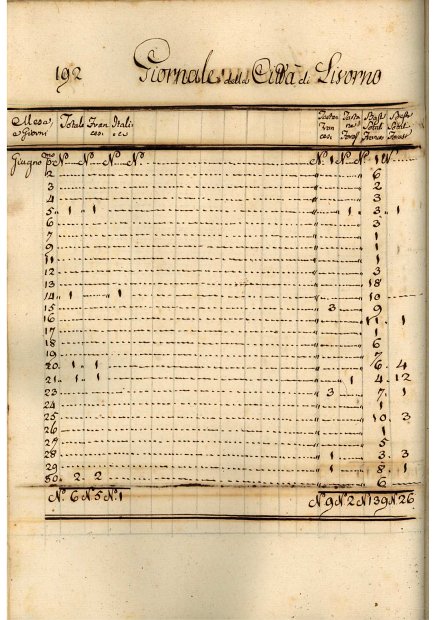 192 Giornale della Città di Livorno
Mesa, e Giorni Totale Fran cesi Itali ci Fran cesi Bast. Total
Giugno pmo No. No. No. No. No. 1 No. No. 1 No.
2 " 6
3 " 2
4 " 3
5 " 1 " 1 " 1 " 3 " 1
6 " 3
7 " 1
9 " 1
11 " 1
12 " 3
13 " 18
14 " 1 " 1 " 10
15 " 3 9
16 " 11 " 1
17 " 1
18 " 6
19 " 7
20 " 1 " 1 " 6 " 4
21 " 1 " 1 " 1 4 " 12
23 " 3 7 " 1
24 " 1
25 " 10 " 3
26 " 1
27 " 5
28 " 1 3 " 3
29 " 1 8 " 1
30 " 2 " 2 " 6
No. 6 No. 5 No. 1 No. 9 No. 2 No. 139 No. 26